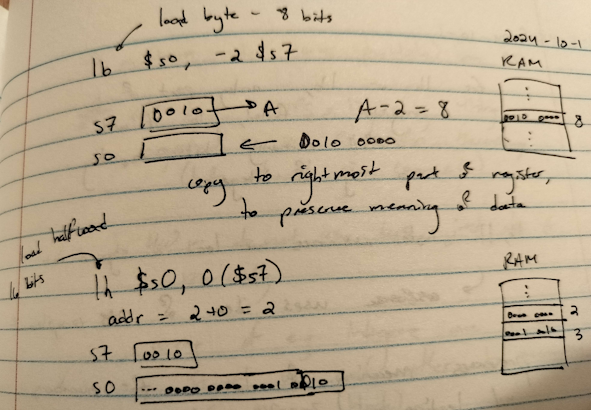 load byte - 8 bits
lb $s0, -2 $s7
2024-10-1
RAM
s7 0010 → A A-2 = 8
0010 0000 8
s0 ← 0010 0000
copy to rightmost part of register,
to preserve meaning of data
load halfword
16 bits
lh $s0, 0($s7)
RAM
addr = 2+0 = 2
0000 0000 2
3
s7 0010
s0 ... 0000 0000 0001 0010